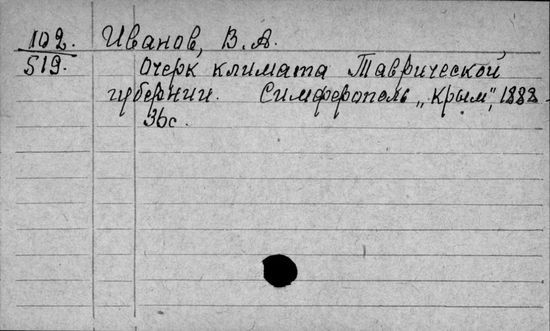 102. Иванов, В. А.
519. Очерк климата Таврической
губернии. Симферополь „Крым", 1888.
36с.